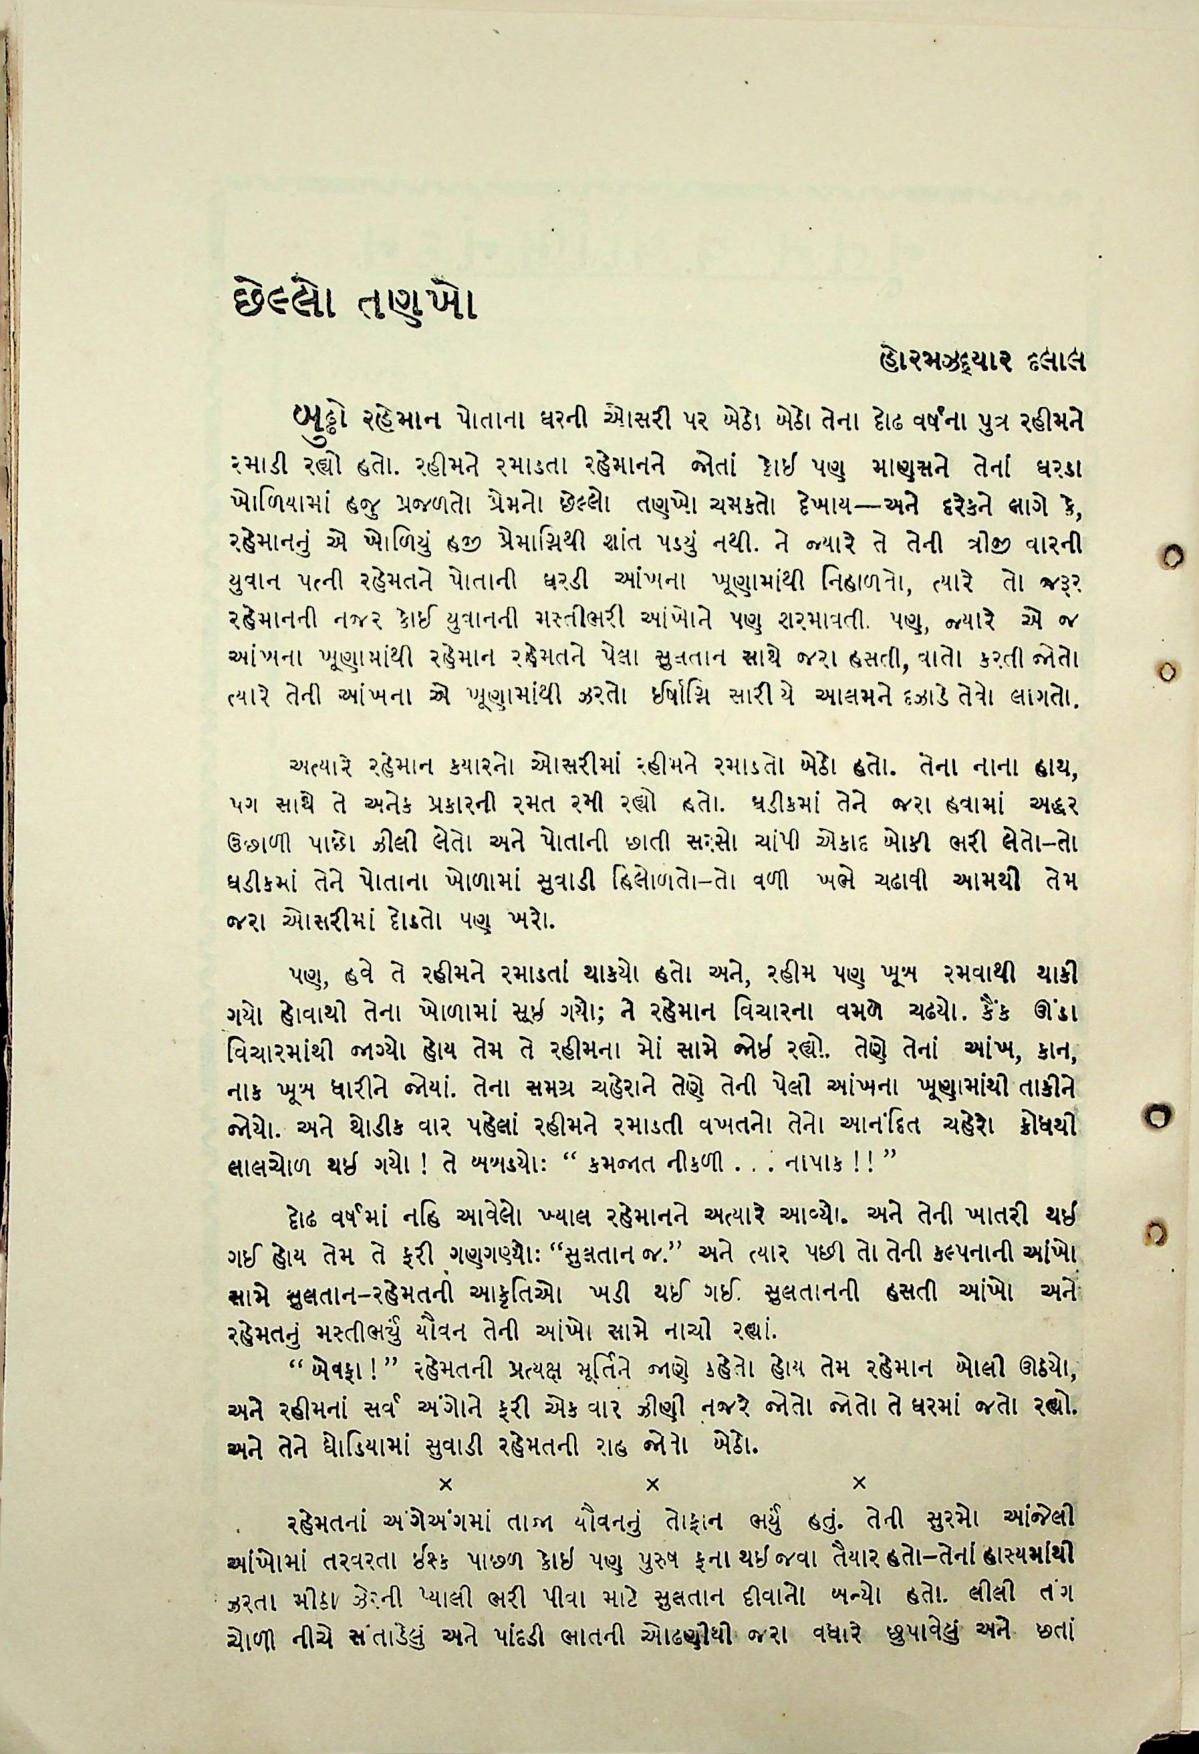 છેલ્લો તણખો
હોરમઝદ્યાર દલાલ
બુઢ્ઢો રહેમાન પોતાના ઘરની ઓસરી પર બેઠો બેઠો તેના દોઢ વર્ષના પુત્ર રહીમને
રમાડી રહ્યો હતો. રહીમને રમાડતા રહેમાનને જોતાં કોઈ પણ માણસને તેનાં ઘરડા
ખોળિયામાં હજુ પ્રજળતો પ્રેમનો છેલ્લો તણખો ચમકતો દેખાય—અને દરેકને લાગે કે,
રહેમાનનું એ ખોળિયું હજી પ્રેમાગ્નિથી શાંત પડ્યું નથી. ને જ્યારે તે તેની ત્રીજી વારની
યુવાન પત્ની રહેમતને પોતાની ઘરડી આંખના ખૂણામાંથી નિહાળતો, ત્યારે તો જરૂર
રહેમાનની નજર કોઈ યુવાનની મસ્તીભરી આંખોને પણ શરમાવતી. પણ, જ્યારે એ જ
આંખના ખૂણામાંથી રહેમાન રહેમતને પેલા સુલતાન સાથે જરા હસતી, વાતો કરતી જોતો
ત્યારે તેની આંખના એ ખૂણામાંથી ઝરતો ઈર્ષાગ્નિ સારી યે આલમને દઝાડે તેવો લાગતો.
અત્યારે રહેમાન કયારનો ઓસરીમાં રહીમને રમાડતો બેઠો હતો. તેના નાના હાથ,
પગ સાથે તે અનેક પ્રકારની રમત રમી રહ્યો હતો. ઘડીકમાં તેને જરા હવામાં અદ્ધર
ઉછાળી પાછો ઝીલી લેતો અને પોતાની છાતી સરસો ચાંપી એકાદ બોકી ભરી લેતો–તો
ઘડીકમાં તેને પોતાના ખોળામાં સુવાડી હિલોળતો–તો વળી ખભે ચઢાવી આમથી તેમ
જરા ઓસરીમાં દોડતો પણ ખરો.
પણ, હવે તે રહીમને રમાડતાં થાકયો હતો અને, રહીમ પણ ખૂબ રમવાથી થાકી
ગયો હોવાથી તેના ખોળામાં સૂઈ ગયો; ને રહેમાન વિચારના વમળે ચઢયો. કૈંક ઊંડા
વિચારમાંથી જાગ્યો હોય તેમ તે રહીમના મોં સામે જોઈ રહ્યો. તેણે તેનાં આંખ, કાન,
નાક ખૂબ ધારીને જોયાં. તેના સમગ્ર ચહેરાને તેણે તેની પેલી આંખના ખૂણામાંથી તાકીને
જોયો. અને થોડીક વાર પહેલાં રહીમને રમાડતી વખતનો તેનો આનંદિત ચહેરો ક્રોધથી
લાલચોળ થઈ ગયો ! તે બબડયો: “ કમજાત નીકળી . . . નાપાક ! ! ”
દોઢ વર્ષમાં નહિ આવેલો ખ્યાલ રહેમાનને અત્યારે આવ્યો. અને તેની ખાતરી થઈ
ગઈ હોય તેમ તે ફરી ગણગણ્યો: “સુલતાન જ.” અને ત્યાર પછી તો તેની કલ્પનાની આંખો
સામે સુલતાન–રહેમતની આકૃતિઓ ખડી થઈ ગઈ. સુલતાનની હસતી આંખો અને
રહેમતનું મસ્તીભર્યું યૌવન તેની આંખો સામે નાચી રહ્યાં.
“ બેવફા ! ” રહેમતની પ્રત્યક્ષ મૂર્તિને જાણે કહેતો હોય તેમ રહેમાન બોલી ઊઠયો,
અને રહીમનાં સર્વ અંગોને ફરી એક વાર ઝીણી નજરે જોતો જોતો તે ઘરમાં જતો રહ્યો.
અને તેને ઘોડિયામાં સુવાડી રહેમતની રાહ જોતો બેઠો.
× × ×
રહેમતનાં અંગેઅંગમાં તાજા યૌવનનું તોફાન ભર્યું હતું. તેની સુરમો આંજેલી
આંખોમાં તરવરતા ઈશ્ક પાછળ કોઈ પણ પુરુષ ફના થઈ જવા તૈયાર હતો–તેનાં હાસ્યમાંથી
ઝરતા મીઠા ઝેરની પ્યાલી ભરી પીવા માટે સુલતાન દીવાનો બન્યો હતો. લીલી તંગ
ચોળી નીચે સંતાડેલું અને પાંદડી ભાતની ઓઢણીથી જરા વધારે છુપાવેલું અને છતાં